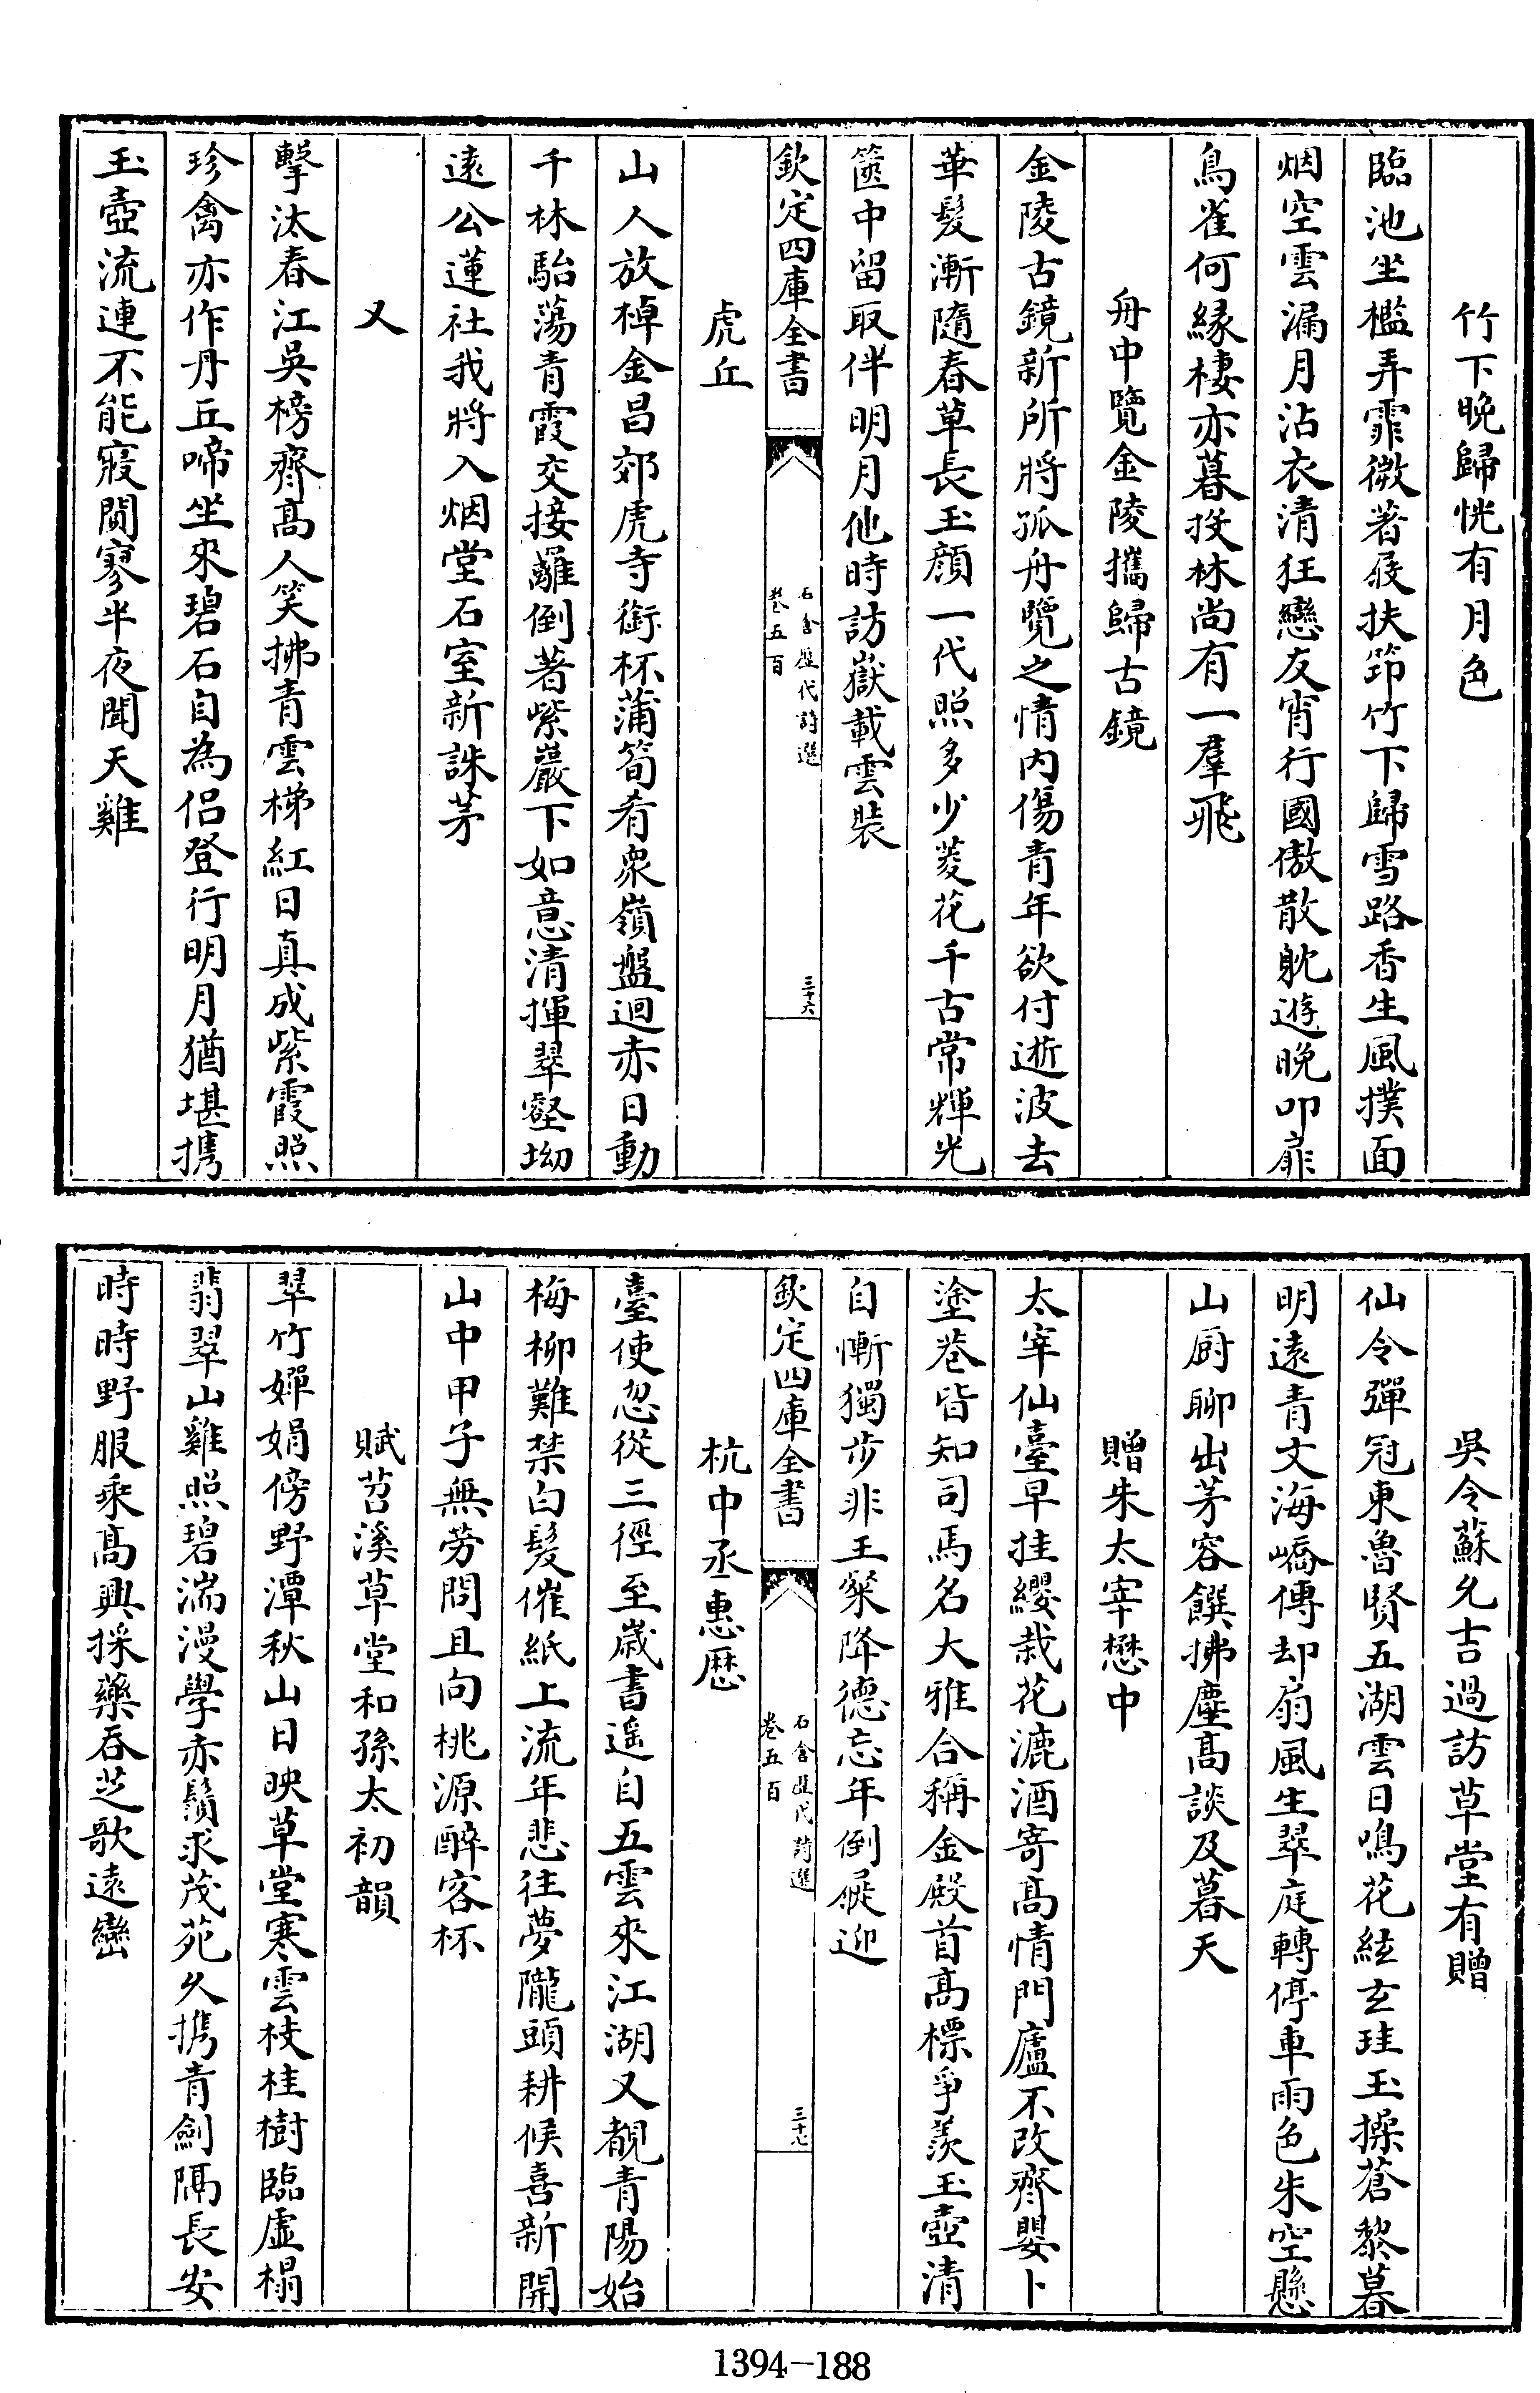 竹下晚歸恍有月色
臨池坐檻弄霏微著屐扶筇竹下歸雪路香生風撲面
烟空雲漏月沾衣清狂戀友宵行國傲散躭遊晚叩扉
鳥雀何緣棲亦暮投林尚有一羣飛
舟中覽金陵攜歸古鏡
金陵古鏡新所將孤舟覽之情內傷青年欲付逝波去
華髮漸隨春草長玉顔一代照多少菱花千古常輝光
篋中留取伴明月他時訪嶽載雲裝
欽定四庫全書
石倉歷代詩選
卷五百
三十六
虎丘
山人放棹金昌郊虎寺銜杯蒲筍肴衆嶺盤迴赤日動
千林駘蕩青霞交接䍦倒著紫巖下如意清揮翠壑坳
遠公蓮社我將入烟堂石室新誅茅
又
擊汰春江吳榜齊髙人笑拂青雲梯紅日真成紫霞照
珍禽亦作丹丘啼坐來碧石自為侶登行明月猶堪攜
玉壺流連不能寢閴寥半夜聞天雞
吳令蘇允吉過訪草堂有贈
仙令彈冠東魯賢五湖雲日鳴花絃玄珪玉操蒼黎暮
明遠青文海嶠傳却扇風生翠庭轉停車雨色朱空懸
山厨聊出茅容饌拂塵髙談及暮天
贈朱太宰懋中
太宰仙臺早挂纓栽花漉酒寄髙情門廬不改齊嬰卜
塗巷皆知司馬名大雅合稱金殿首髙標爭羨玉壺清
自慚獨步非王粲降德忘年倒屣迎
欽定四庫全書
石倉歷代詩選
卷五百
三十七
杭中丞惠厯
臺使忽從三徑至嵗書遥自五雲來江湖又覩青陽始
梅柳難禁白髮催紙上流年悲往夢隴頭耕候喜新開
山中甲子無勞問且向桃源醉客杯
賦苕溪草堂和孫太初韻
翠竹嬋娟傍野潭秋山日映草堂寒雲枝桂樹臨虛榻
翡翠山雞照碧湍漫學赤鬚求茂苑久攜青劍隔長安
時時野服乘髙興採藥吞芝歌遠巒
1394-188